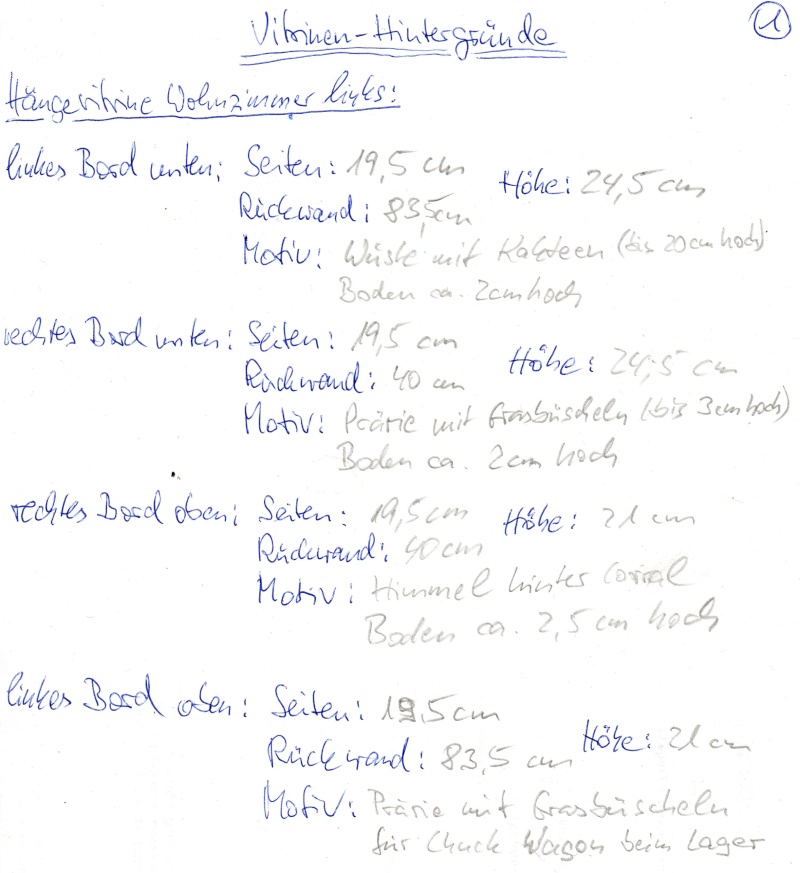 1
Vitrinen-Hintergründe
Hängevitrine Wohnzimmer links:
linkes Bord unten: Seiten: 19,5 cm Höhe: 24,5 cm
Rückwand: 83,5cm
Motiv: Wüste mit Kakteen (bis 20cm hoch)
Boden ca. 2cm hoch
rechtes Bord unten: Seiten: 19,5 cm Höhe: 24,5 cm
Rückwand: 40 cm
Motiv: Prärie mit Grasbüscheln (bis 3cm hoch)
Boden ca. 2cm hoch
rechtes Bord oben: Seiten: 19,5cm Höhe: 21 cm
Rückwand: 40cm
Motiv: Himmel hinter Corral
Boden ca. 2,5 cm hoch
linkes Bord oben: Seiten: 19.5cm Höhe: 21cm
Rückwand: 83,5 cm
Motiv: Prärie mit Grasbüscheln
für Chuck Wagon beim Lager